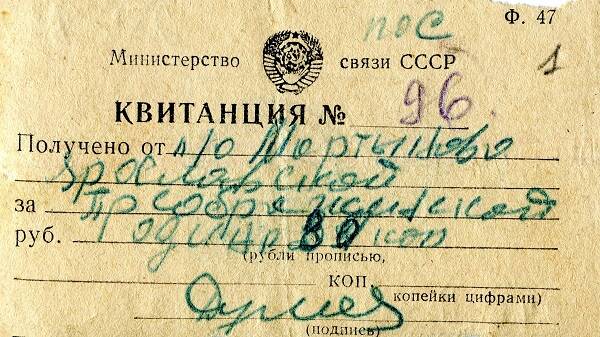 Ф. 47
пос
1
Министерство связи СССР
КВИТАНЦИЯ № 96.
Получено от п/о Мартыново
Ярославской
за Преображенской
руб. 80 коп
(рубли прописью,
КОП.
копейки цифрами)
(подпись)